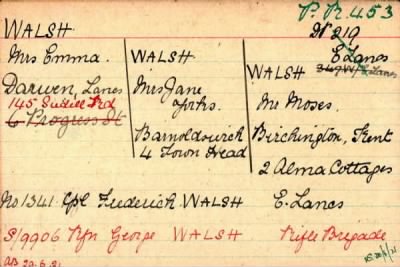 P. R. 453
WALSH
Mrs Emma.
Darwen, Lancs
145 Rd
6 Progress St
WALSH
Mrs Jane
Yorks.
Barnoldswick
4 Town Head
N 219
E Lancs
WALSH
Mr Moses.
Birchington, Kent
2 Alma Cottages
No 1341 Cpl Frederick WALSH E. Lancs
S/9906 Rfn George WALSH Rifle Brigade